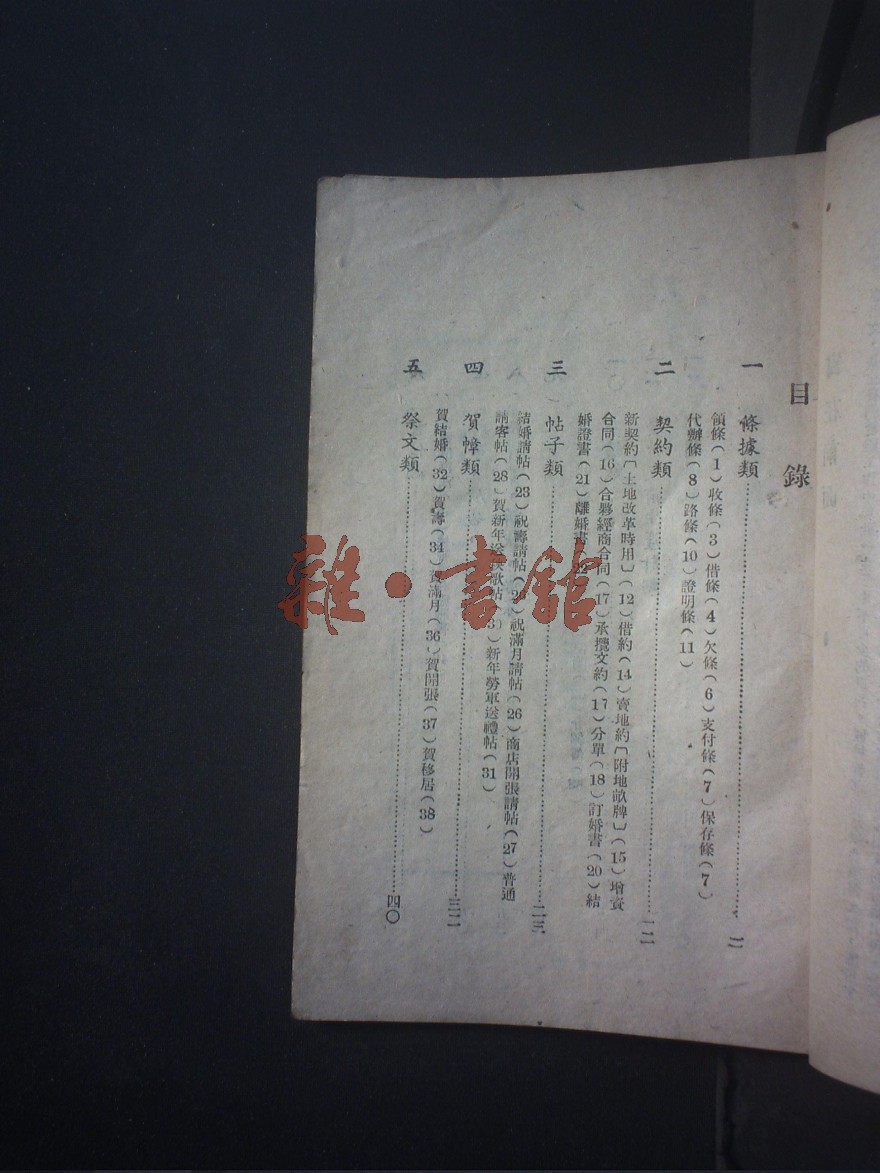 目錄
一 條據類 一
領條(1)收條(3)借條(4)欠條(6)支付條(7)保存條(7)
代辦條(8)路條(10)證明條(11)
二 契約類 一二
新契約〔土地改革時用〕(12)借約(14)賣地約〔附地畝牌〕(15)增資
合同(16)合夥經商合同(17)承攬文約(17)分單(18)訂婚書(20)結
婚證書(21)離婚書(22)
三 帖子類 二三
結婚請帖(23)祝壽請帖(2)祝滿月請帖(26)商店開張請帖(27)普通
請客帖(28)賀新年送秧歌帖(3)新年勞軍送禮帖(31)
四 賀幛類 三二
賀結婚(32)賀壽(34)賀滿月(36)賀開張(37)賀移居(38)
五 祭文類 四〇
雜·書館